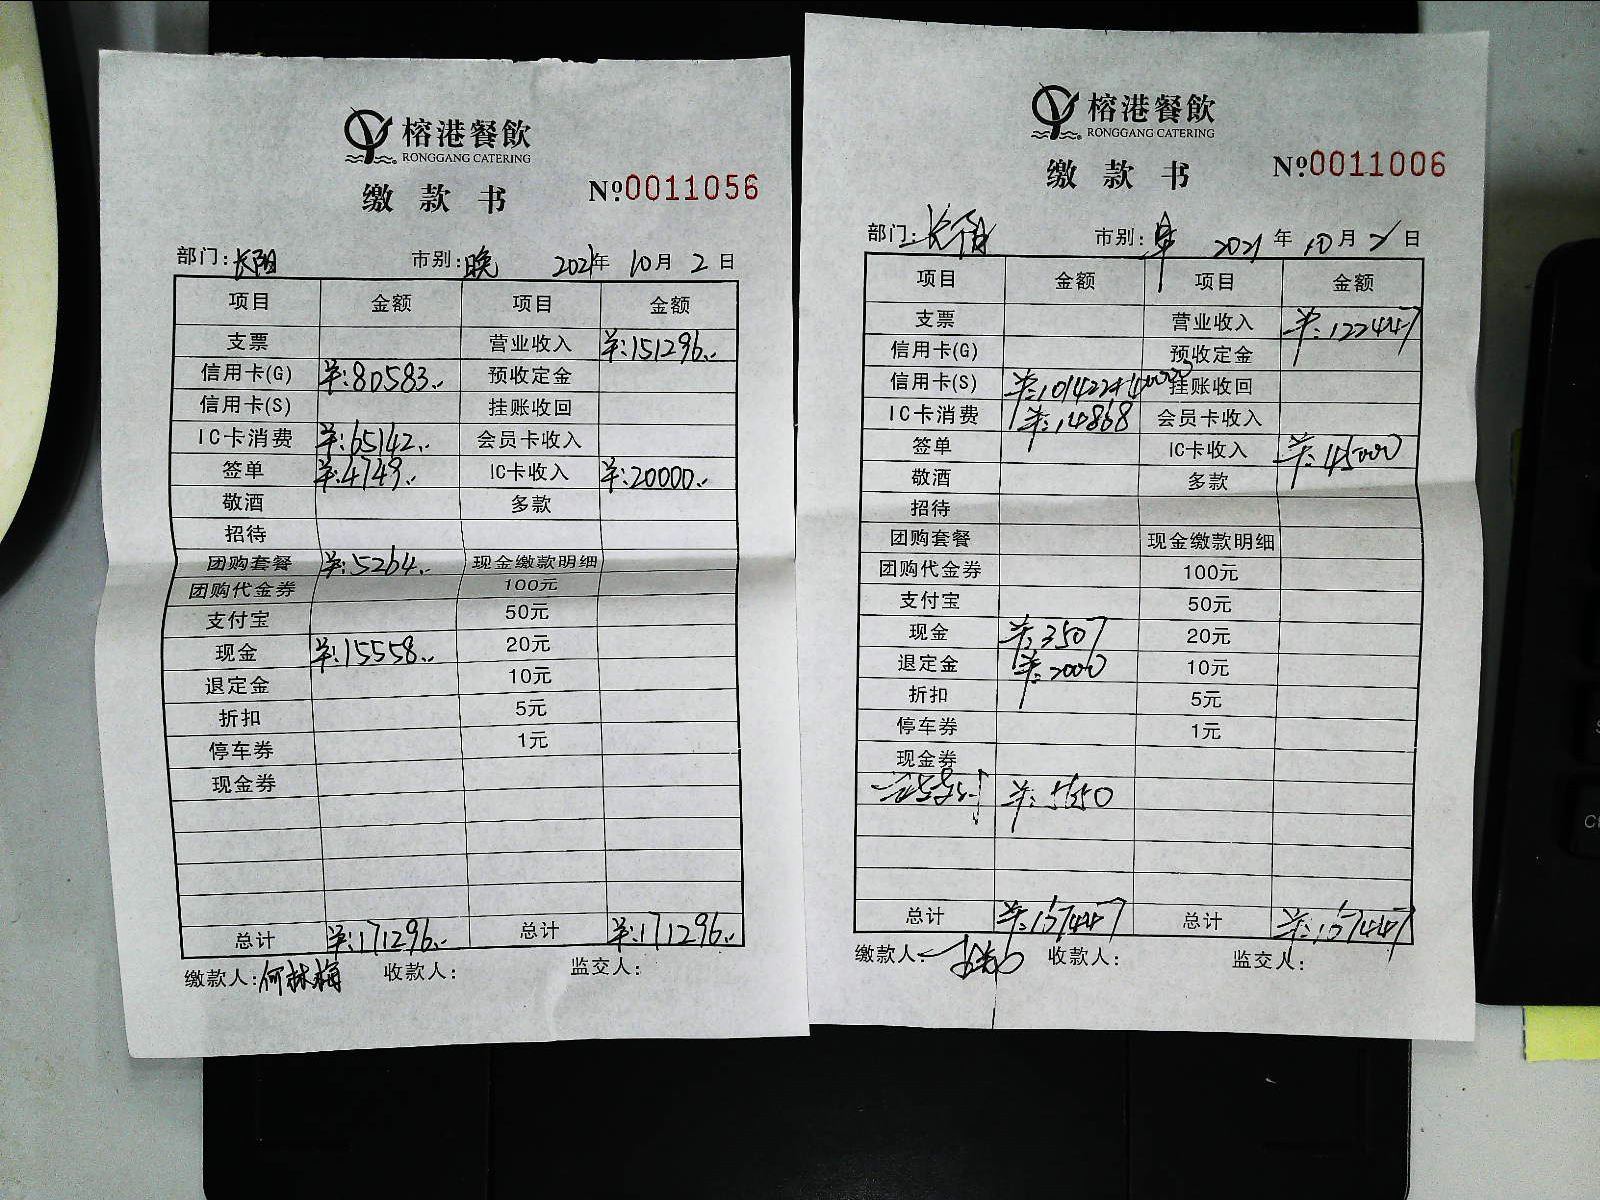 榕港餐飲
RONGGANG CATERING
缴款书 Nº:0011056
部门:长阳 市别:晚 2021年10月2日
项目 金额 项目 金额
支票 营业收入 ¥:151296..
信用卡(G) ¥:80583.. 预收定金
信用卡(S) 挂账收回
IC卡消费 ¥:65142.. 会员卡收入
签单 ¥:4749.. IC卡收入 ¥:20000..
敬酒 多款
招待
团购套餐 ¥:5264.. 现金缴款明细
团购代金券 100元
支付宝 50元
现金 ¥:15558.. 20元
退定金 10元
折扣 5元
停车券 1元
现金券
总计 ¥:171296.. 总计 ¥:171296..
缴款人:何林梅 收款人: 监交人:
榕港餐飲
RONGGANG CATERING
缴款书 Nº:0011006
部门: 市别: 2021年10月2日
项目 金额 项目 金额
支票 营业收入 ¥:122447
信用卡(G) 预收定金
信用卡(S) 挂账收回
IC卡消费 ¥:14868 会员卡收入
签单 IC卡收入 ¥:45000
敬酒 多款
招待
团购套餐 现金缴款明细
团购代金券 100元
支付宝 50元
现金 ¥:3507 20元
退定金 ¥:2000 10元
折扣 5元
停车券 1元
现金券
总计 ¥:167447 总计 ¥:167447
缴款人: 收款人: 监交人: